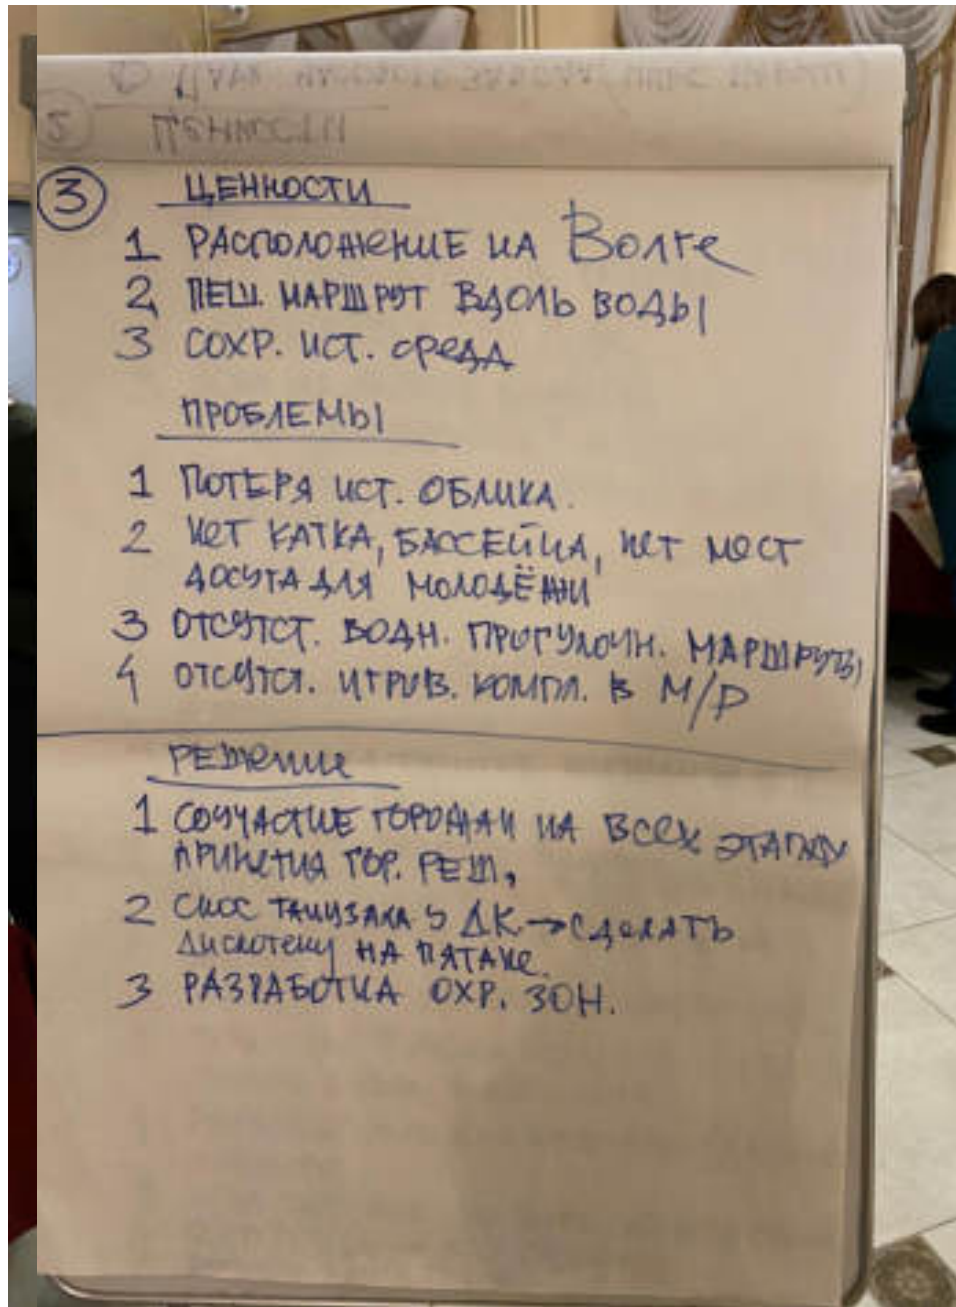 ЦЕННОСТИ
3 ЦЕННОСТИ
1 РАСПОЛОЖЕНИЕ НА Волге
2 ПЕШ. МАРШРУТ ВДОЛЬ ВОДЫ
3 СОХР. ИСТ. среда
ПРОБЛЕМЫ
1 ПОТЕРЯ ИСТ. ОБЛИКА.
2 НЕТ КАТКА, БАССЕЙНА, НЕТ МЕСТ
ДОСУГА ДЛЯ МОЛОДЁЖИ
3 ОТСУТСТ. ВОДН. ПРОГУЛОЧН. МАРШРУТЫ
4 ОТСУТСТ. ИГРОВ. КОМПЛ. В М/Р
РЕШЕНИЕ
1 СОУЧАСТИЕ ГОРОЖАН НА ВСЕХ ЭТАПАХ
ПРИНЯТИЯ ГОР. РЕШ,
2 СНОС ТАНЦЗАЛА У ДК → СДЕЛАТЬ
ДИСКОТЕКУ НА ПЯТАКЕ.
3 РАЗРАБОТКА ОХР. ЗОН.